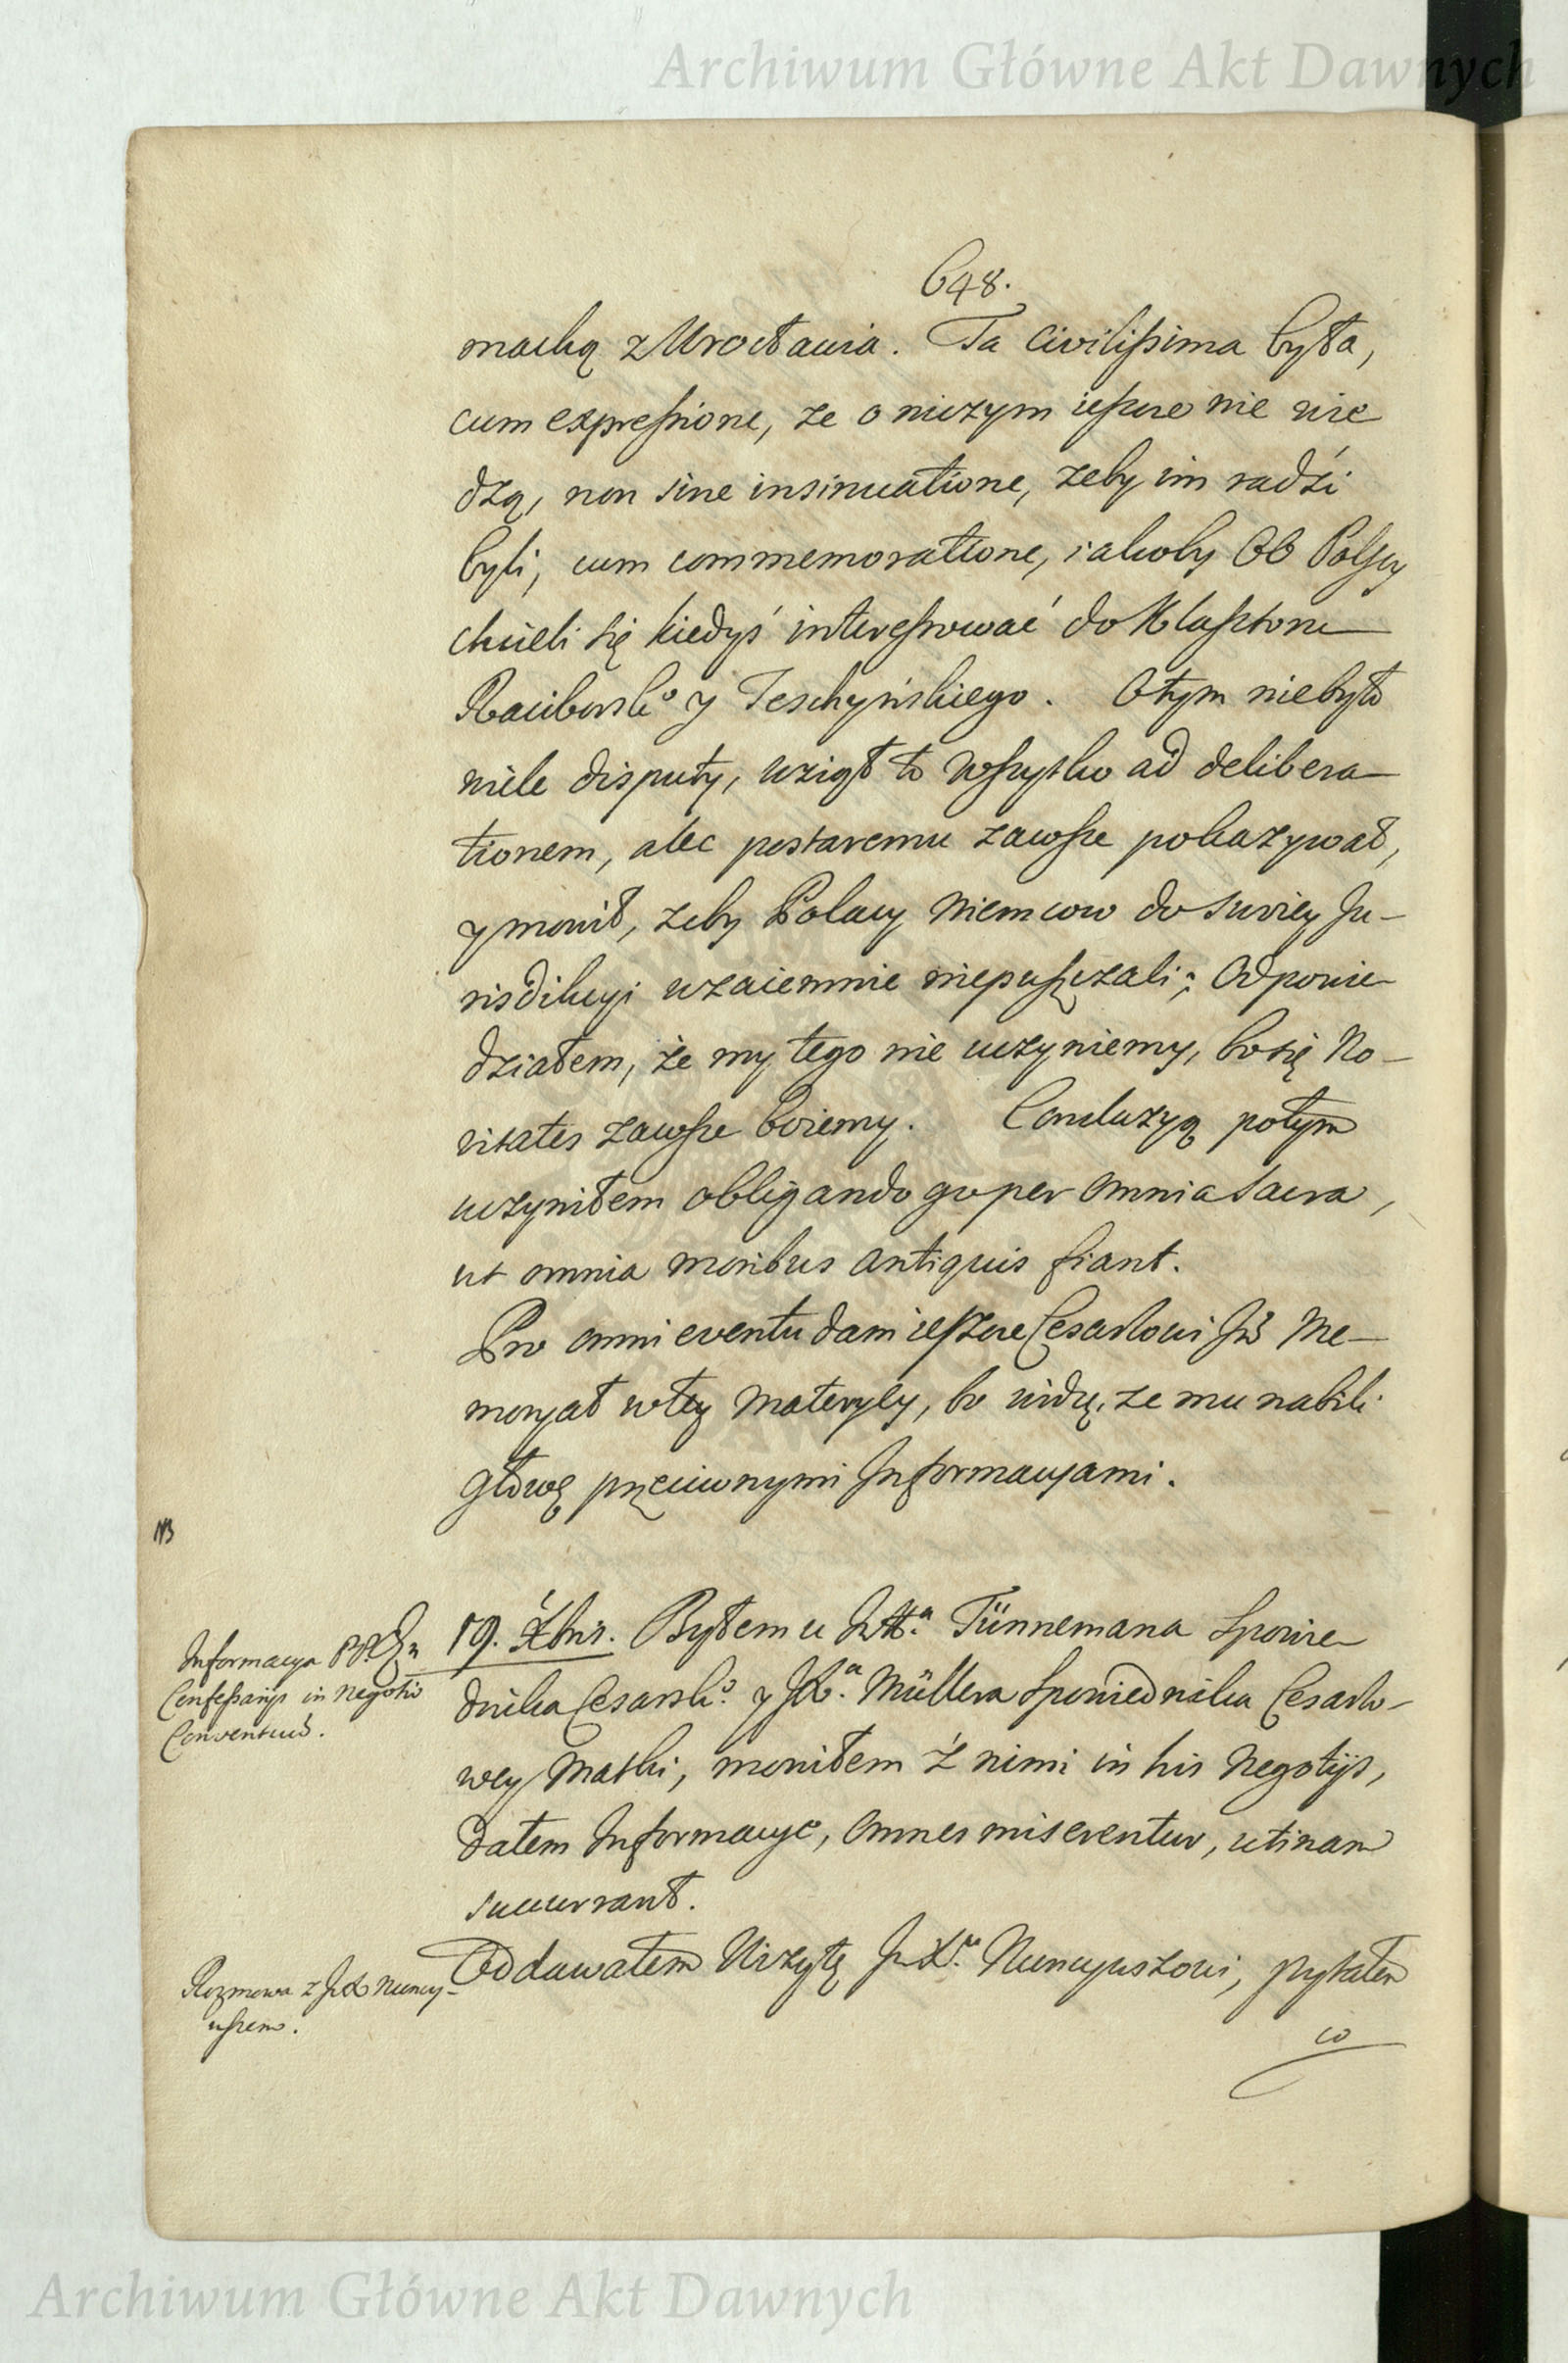 Archiwum Główne Akt Dawnych
648.
macką z Wrocławia. Ta civilissima była,
cum expressione, ze o niczym ieszcze nie wie
dzą, non sine insinuatione, zeby im radźi
byli, cum commemoratione, iakoby OO Polscy
chcieli się kiedyś interessować do Klasztoru
Raciborsko y Teschyńskiego. O tym niebyło
wiele disputy, wziął to wszytko ad delibera
tionem, alec postaremu zawsze pokazywał,
y mowił, zeby Polacy Niemcow do swoiey Ju-
risdikcyi wzaiemnie niepuszczali; Odpowie
działem, że my tego nie uczyniemy, bo się No-
vitates zawsze boiemy. Concluzyą potym
uczyniłem obligando go per omnia Sacra,
ut omnia moribus antiquis fiant.
Pro omni eventu dam ieszcze Cesarzowi Me-
moryał w tey Materyey, bo widzę, ze mu nabili
głowę przeciwnymi Informacyami.
NB
Informacya
Confessarijs in negotio
Conventuum.
19. Xbris. Byłem u Tünnemana Spowie
dnika Cesarsko. y Müllera Spowiednika Cesarzo-
wey Matki, mowiłem z nimi in his Negotijs,
dałem Informacye, omnes miserentur, utinam
succurrant.
Rozmowa z Nuncy-
uszem.
Oddawałem Wizytę Nuncyuszowi, pytałem
co
Archiwum Główne Akt Dawnych